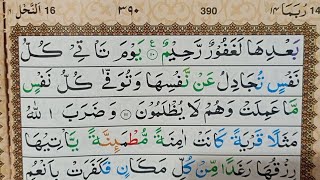 رُبَمَا ١٤ ٣٩٠ 390 اَلنَّحْل 16
بَعْدِهَا لَغَفُوْرٌ رَّحِيْمٌ يَوْمَ تَاْتِيْ كُلُّ
نَفْسٍ تُجَادِلُ عَنْ نَّفْسِهَا وَتُوَفّٰى كُلُّ نَفْسٍ
مَّا عَمِلَتْ وَهُمْ لَا يُظْلَمُوْنَ وَضَرَبَ اللّٰهُ
مَثَلًا قَرْيَةً كَانَتْ اٰمِنَةً مُّطْمَئِنَّةً يَّاْتِيْهَا
رِزْقُهَا رَغَدًا مِّنْ كُلِّ مَكَانٍ فَكَفَرَتْ بِاَنْعُمِ